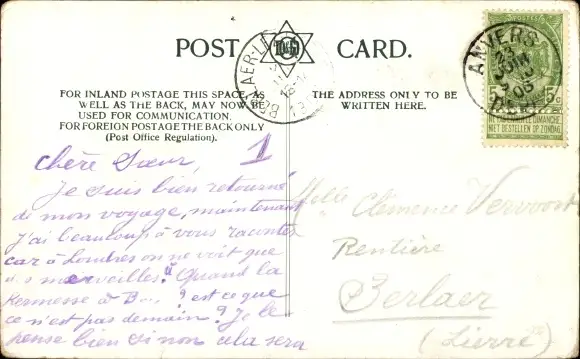 POST CARD.
FOR INLAND POSTAGE THIS SPACE, AS
WELL AS THE BACK, MAY NOW BE
USED FOR COMMUNICATION.
FOR FOREIGN POSTAGE THE BACK ONLY
(Post Office Regulation).
THE ADDRESS ONLY TO BE
WRITTEN HERE.
ANVERS
POSTES
NE PAS LIVRER LE DIMANCHE
NIET BESTELLEN OP ZONDAG
1
Chère Sœur,
Je suis bien retourné
di mon voyage, maintenant
j'ai beaucoup à vous raconter
car à Londres on ne voit que
des merveilles. Quand la
Kermesse à B... ? est ce que
ce n'est pas demain? Je le
pense bien si non cela sera
Melle Clémence Vervoort
Rentière
Berlaer
(Lierre)